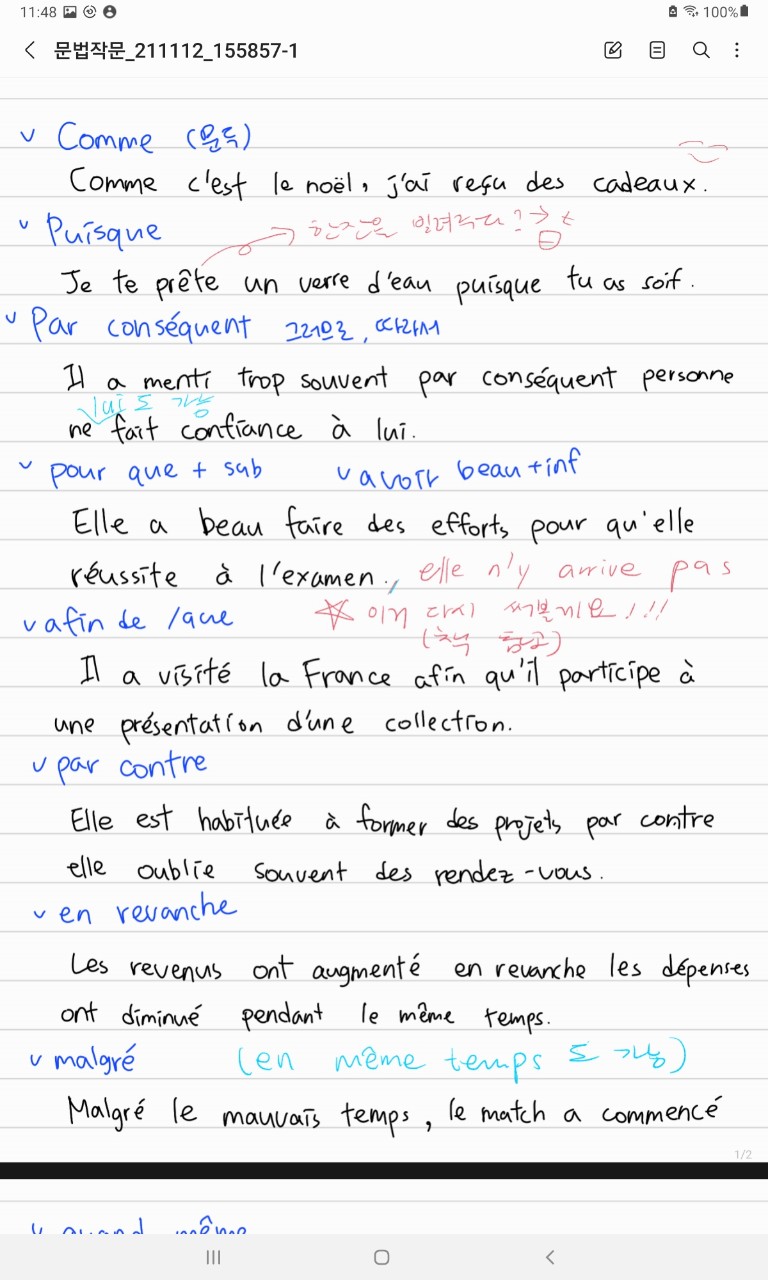 11:48 100%
문법작문_211112_155857-1
v Comme (문두)
Comme c'est le noël, j'ai reçu des cadeaux.
v Puisque
한잔을 빌려준다? →
Je te prête un verre d'eau puisque tu as soif.
v Par conséquent 그러므로, 따라서
Il a menti trop souvent par conséquent personne
lui 도 가능
ne fait confiance à lui.
v pour que + sub v avoir beau + inf
Elle a beau faire des efforts pour qu'elle
réussite à l'examen., elle n'y arrive pas
v afin de /que ☆ 이거 다시 써볼게요!!!
Il a visité la France afin qu'il participe à
une présentation d'une collection.
v par contre
Elle est habituée à former des projets par contre
elle oublie souvent des rendez-vous.
v en revanche
Les revenus ont augmenté en revanche les dépenses
ont diminué pendant le même temps.
v malgré (en même temps 도 가능)
Malgré le mauvais temps, le match a commencé
1/2
v quand même